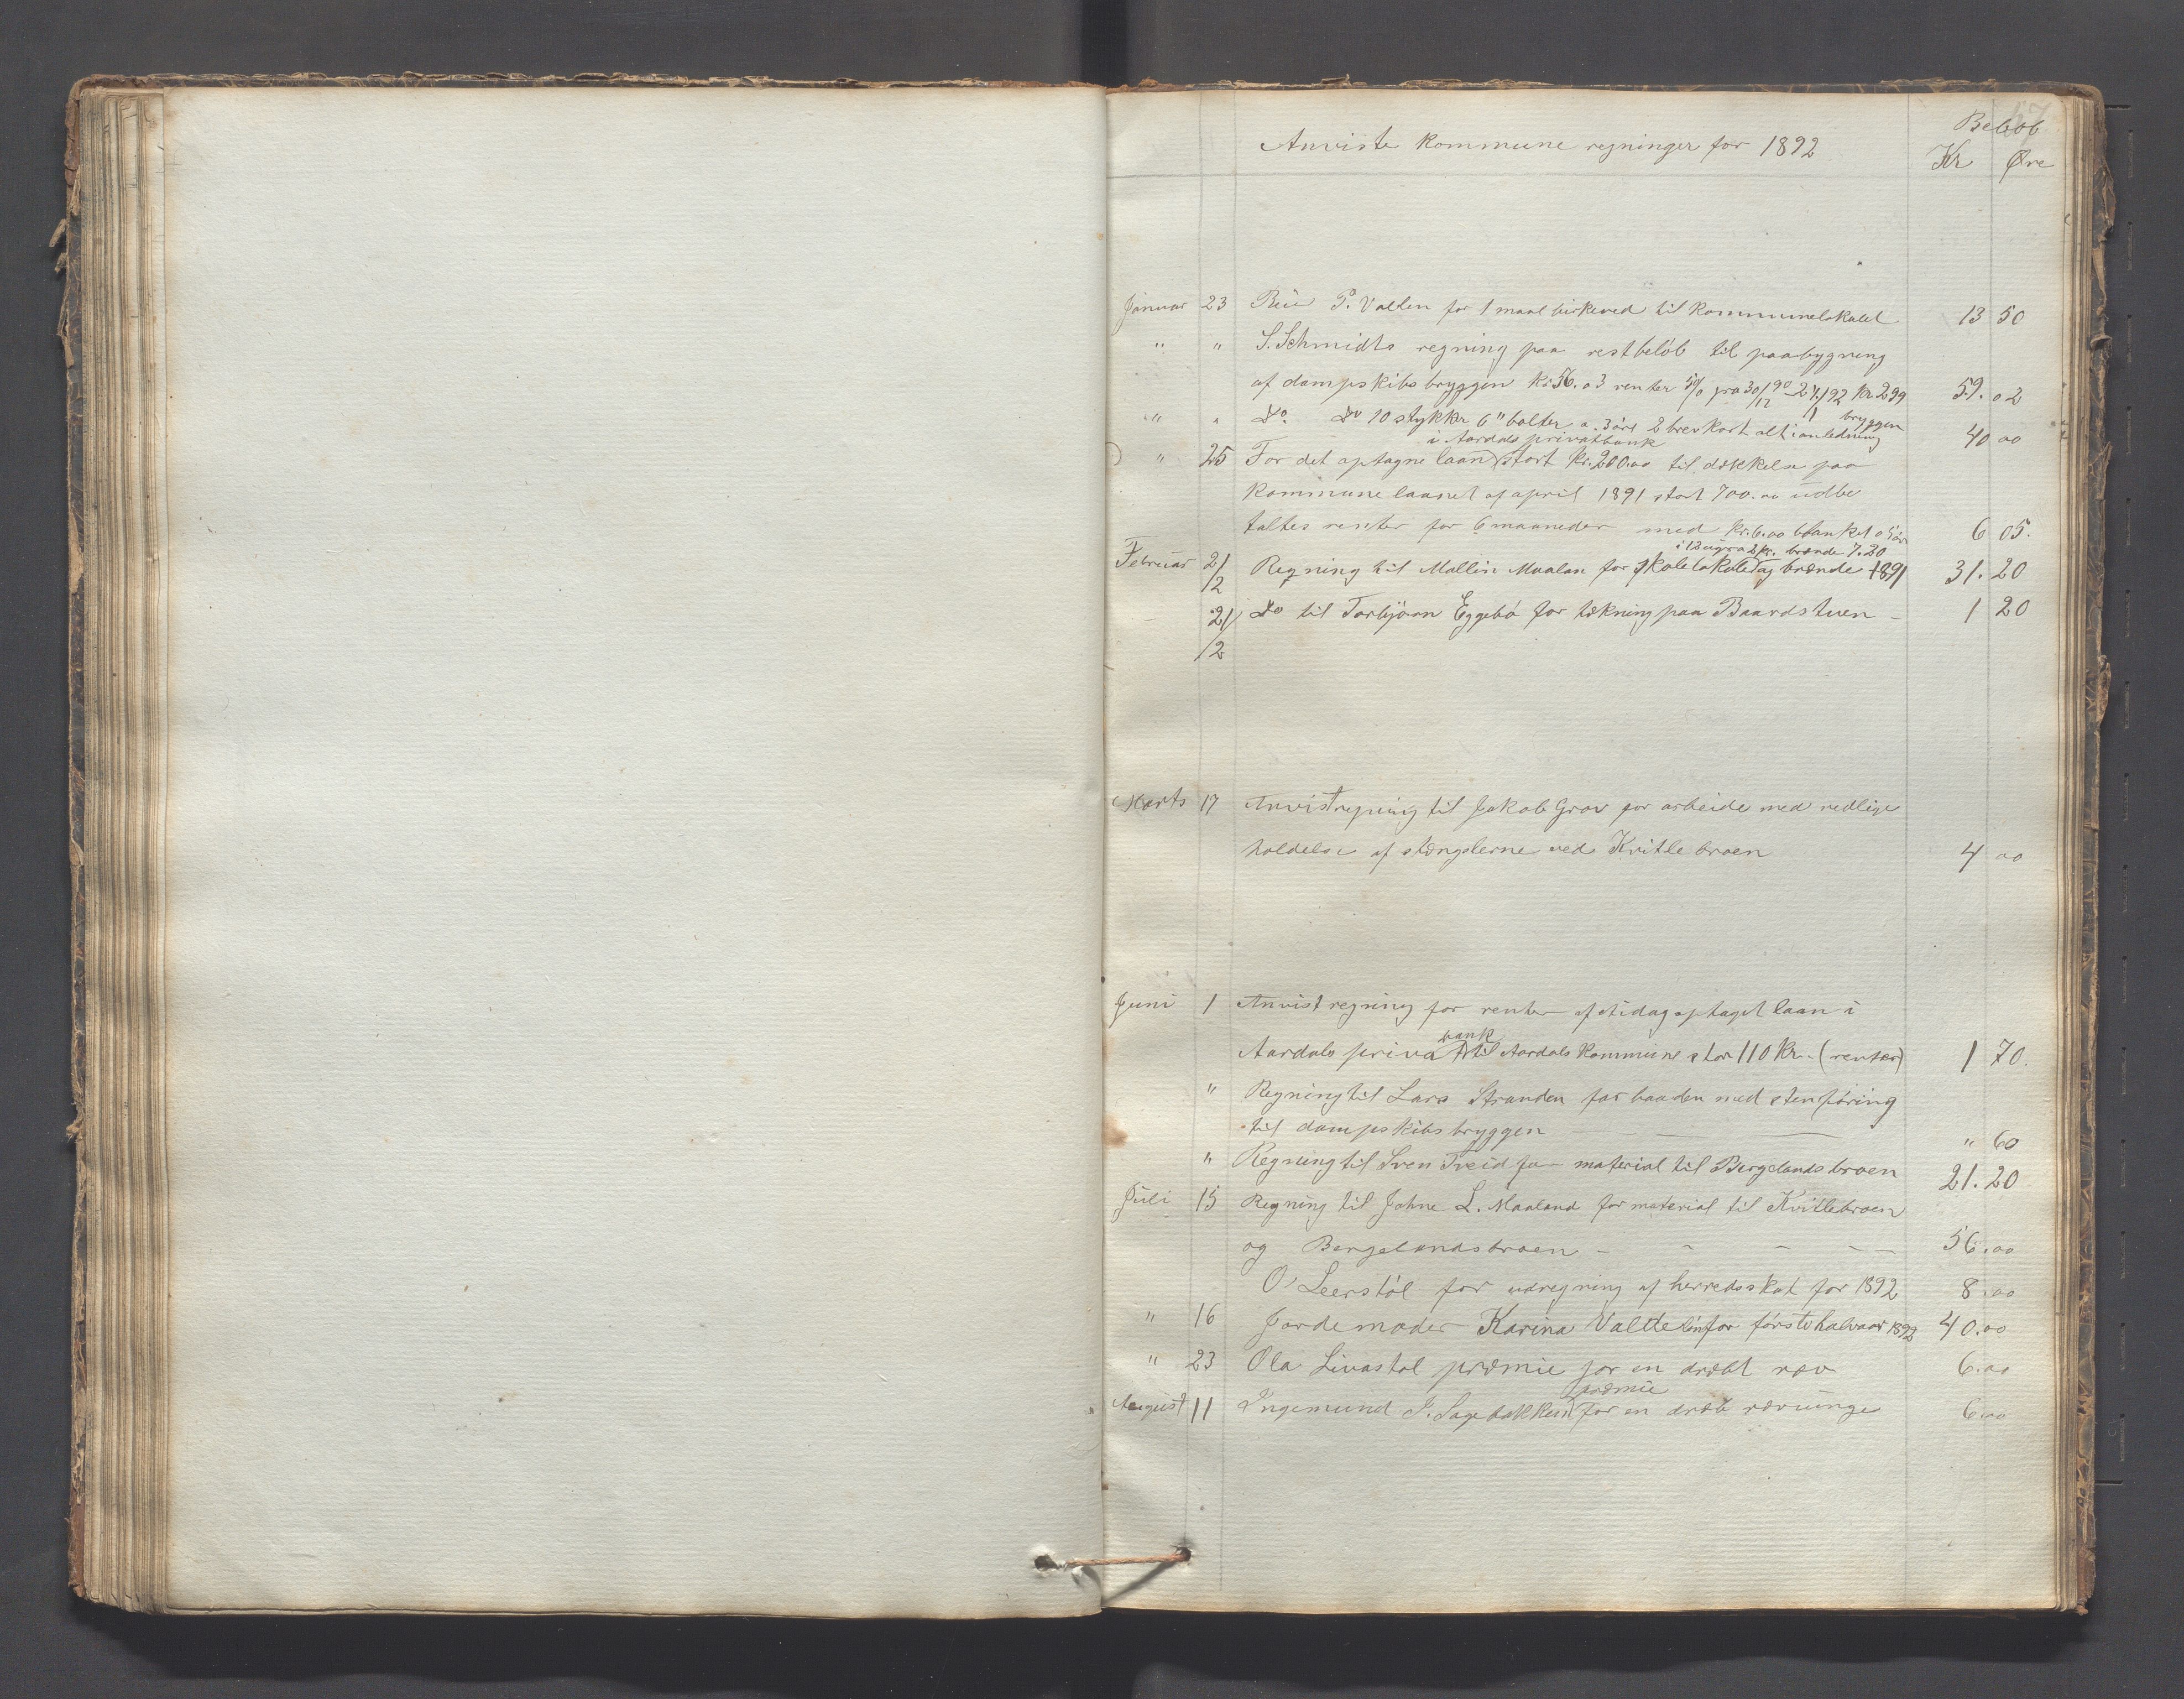 Beløb
Anviste kommune regninger for 1892 Kr Øre
Januar 23 P. Valten for 1 maal birkeved til kommunelokalet 13 50
" " S. Schmidts regning paa restbeløb til paabygning
af dampskibsbryggen kr 56.03 renter 5% fra 30/12 90 - 27/1 92 kr. 299 59.02
bryggen
" " Do. Do 10 stykker 6" bolter a. 3 øre 2 brevkort alt i anledning 40 00
i Aardals privatbank
" 25 For det optagne laan stort kr. 200.00 til dækkelse paa
kommune laanet af april 1891 stort 700.00 udbe
taltes renter for 6 maaneder med kr. 6.00 blanket 05 øre 6 05.
2 kr. brænde 7.20
Februar 2/2 Regning til Mallin Maalan for skolelokale og brænde 1891 31.20
21/2 Do til Torbjørn Eggebø for tækning paa Baardstuen - 1 20
Marts 17 Anvist regning til Jakob Grov for arbeide med vedlige
holdelse af stængslerne ved Kvitlebroen 4 00
Juni 1 Anvist regning for renter af itidag optaget laan i
bank
Aardals privat til Aardals kommune stor 110 kr. (renter) 1 70.
" Regning til Lars Stranden for baaden med stenføring
til dampskibsbryggen " 60
" Regning til Sven Tveid for material til Bergelandsbroen 21.20
Juli 15 Regning til Johne L. Maaland for material til Kvitlebroen
og Bergelandsbroen - - - - 56.00
O. Leerstøl for udregning af herredsskat for 1892 8.00
" 16 Jordemoder Karina Valde løn for første halvaar 1892 40.00
" 23 Ola Livastøl præmie for en dræbt ræv 6.00
præmie
August 11 Ingemund P. Sagebakken for en dræb rævunge 6.00